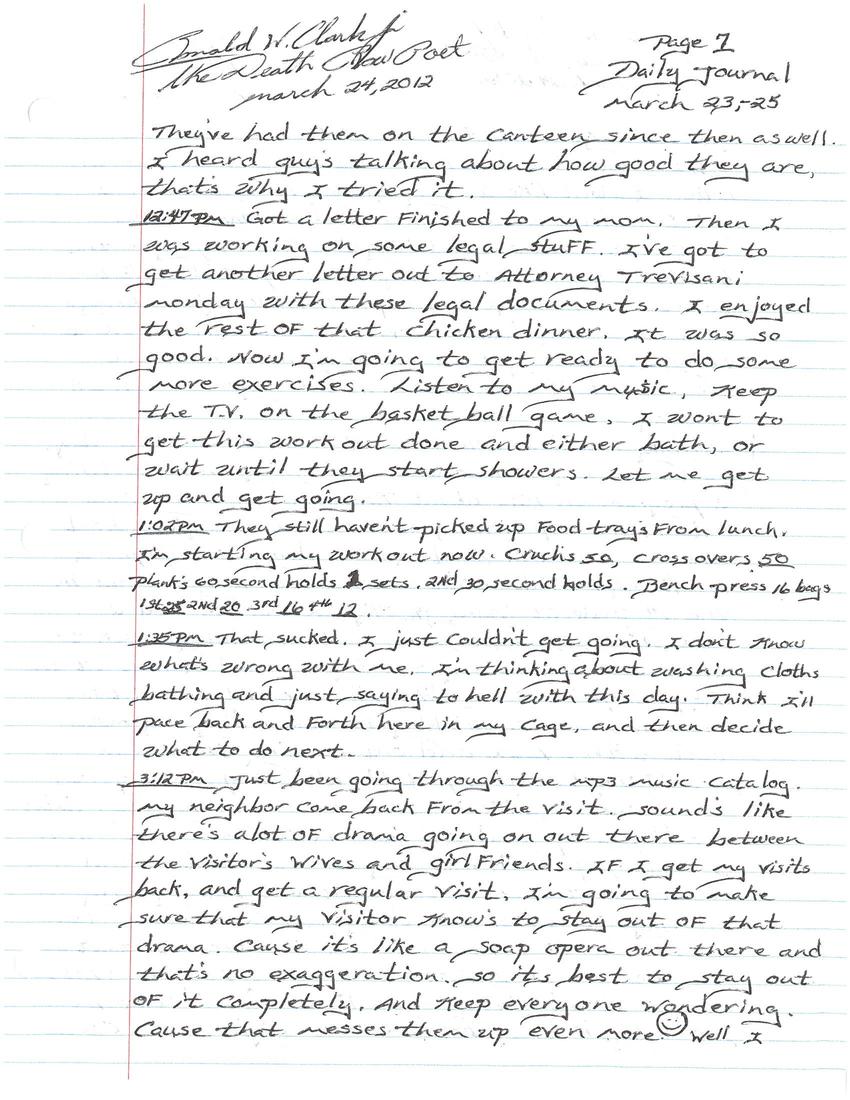 Ronald W. Clark Jr
The Death Row Poet
March 24, 2012
Page 7
Daily Journal
March 23,-25
They've had them on the canteen since then aswell.
I heard guy's talking about how good they are,
that's why I tried it.
12:47pm Got a letter Finished to my mom. Then I
was working on some legal stuFF. I've got to
get another letter out to Attorney Trevisani
monday with these legal documents. I enjoyed
the rest OF that chicken dinner. It was so
good. Now I'm going to get ready to do some
more exercises. Listen to my music, Keep
the T.V. on the basket ball game. I wont to
get this work out done and either bath, or
wait until they start showers. Let me get
up and get going.
1:02pm They still haven't picked up Food-tray's From lunch.
I'm starting my work out now. Cruchs 50, Cross overs 50
Plank's 60 second holds 1 sets. 2nd 30 second holds. Bench press 16 bags
1st 25 2nd 20 3rd 16 4th 12.
1:35pm That sucked. I just couldn't get going. I don't know
what's wrong with me. I'm thinking about washing cloths
bathing and just saying to hell with this day. Think I'll
pace back and Forth here in my cage, and then decide
what to do next.
3:12pm Just been going through the mp3 music catalog.
my neighbor come back From the visit. sound's like
there's alot OF drama going on out there between
the visitor's wives and girlFriends. IF I get my visits
back, and get a regular visit, I'm going to make
sure that my visitor know's to stay out OF that
drama. Cause it's like a soap opera out there and
that's no exaggeration. so it's best to stay out
OF it completely. And keep everyone wondering.
Cause that messes them up even more. Well I